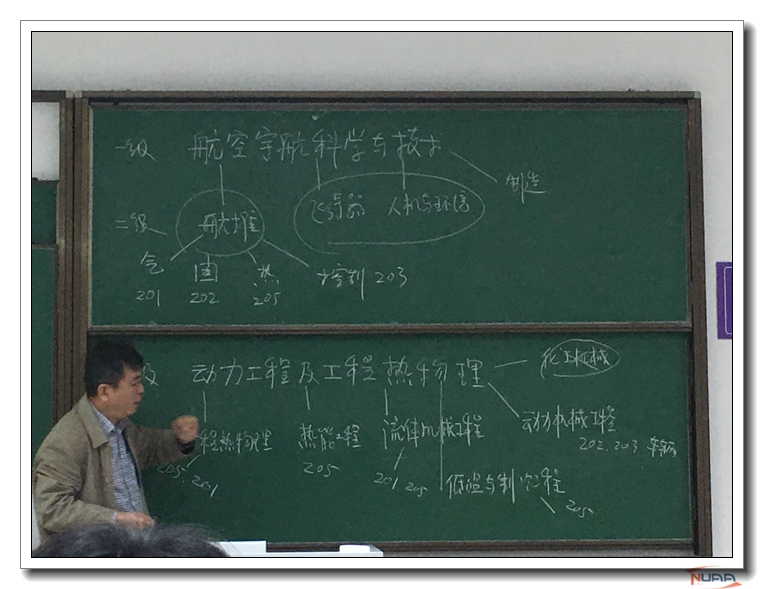 一级 航空宇航科学与技术
制造
二级 航推 飞行器 人机与环境
气 固 热 控制 203
201 202 205
级 动力工程及工程热物理 化工机械
程热物理 热能工程 流体机械工程 动力机械工程
205. 201 205 201. 205 202. 203.
低温与制冷工程
205
NUAA